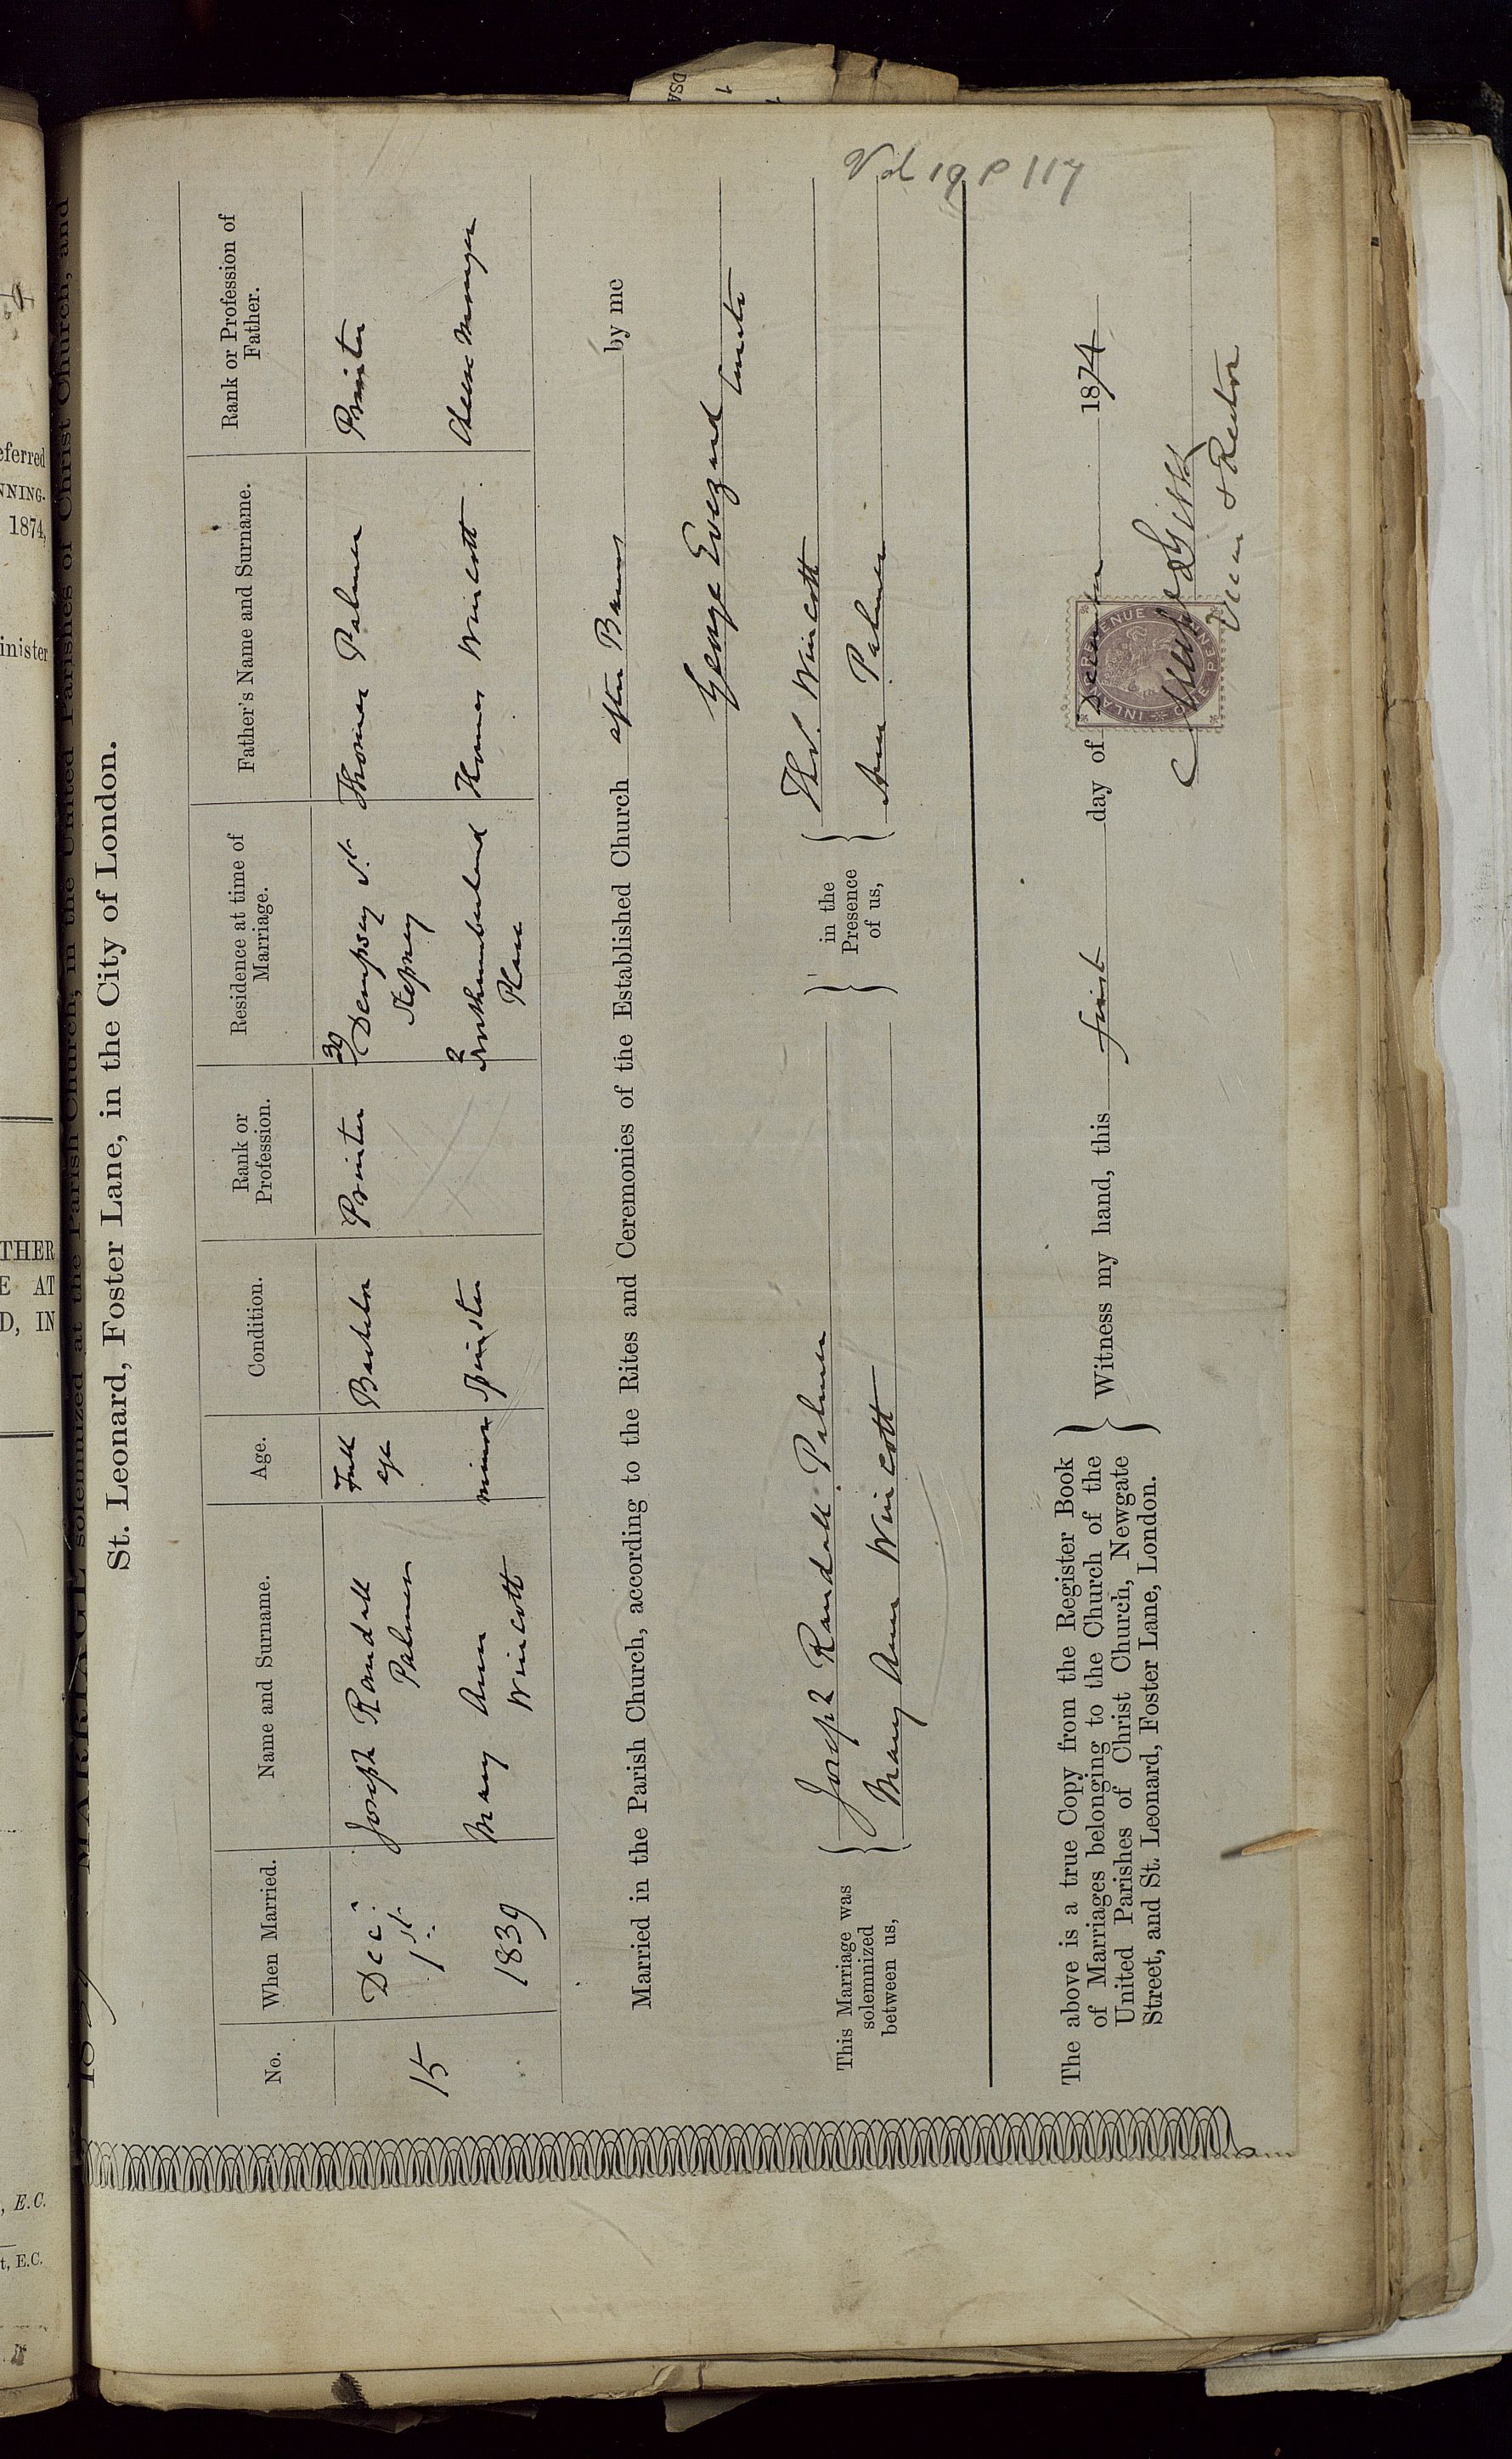 1839 MARRIAGE solemnized at the Parish Church, in the United Parishes of Christ Church, and
St. Leonard, Foster Lane, in the City of London.
No.
When Married.
Name and Surname.
Age.
Condition.
Rank or
Profession.
Residence at time of
Marriage.
Father's Name and Surname.
Rank or Profession of
Father.
15
Decr.
1st
1839
Joseph Randall
Palmer
Full
age
Bachelor
Printer
39
Dempsey St.
Stepney
Thomas Palmer
Printer
Mary Ann
Wincott
minor
Spinster
2
Northumberland
Place
Thomas Wincott
Cheese Monger
Married in the Parish Church, according to the Rites and Ceremonies of the Established Church after Banns by me
George Evezard Curate
This Marriage was
solemnized
between us,
Joseph Randall Palmer
Mary Ann Wincott
in the
Presence
of us,
Thos. Wincott
Ann Palmer
Vol 19 P 117
The above is a true Copy from the Register Book
of Marriages belonging to the Church of the
United Parishes of Christ Church, Newgate
Street, and St. Leonard, Foster Lane, London.
Witness my hand, this first day of December 1874
INLAND REVENUE
ONE PENNY
Vicar & Rector
eferred
NNING.
1874,
inister
THER
E AT
D, IN
, E.C.
t, E.C.
DSA